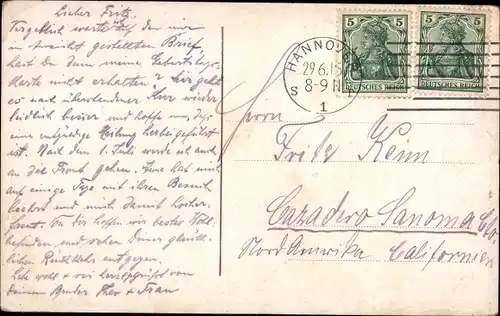 Lieber Fritz,
Vergeblich warte auf den mir
in Aussicht gestellten Brief,
hast Du denn meine Geburtstags-
Karte nicht erhalten? Mir geht
es nach überstandener Kur wieder
leidlich besser und hoffe nun, daß
eine endgiltige Heilung herbeigeführt
ist. Nach dem 1. Juli werde ich auch
an die Front gehen. hat mich
auf einige Tage mit ihrem Besuch
und mich damit
Von Dir hoffen wir bestes Wohl-
befinden und sehen Deiner glück-
lichen Rückkehr entgegen.
Lebe wohl + sei herzl. gegrüßt von
Deinem Bruder Theo + Frau
HANNOVER
29.6.15
8-9 N
S
1
5
5
DEUTSCHES REICH
DEUTSCHES REICH
Herrn
Fritz Keim
Cazadero Sanoma Co
Nord Amerika Californien